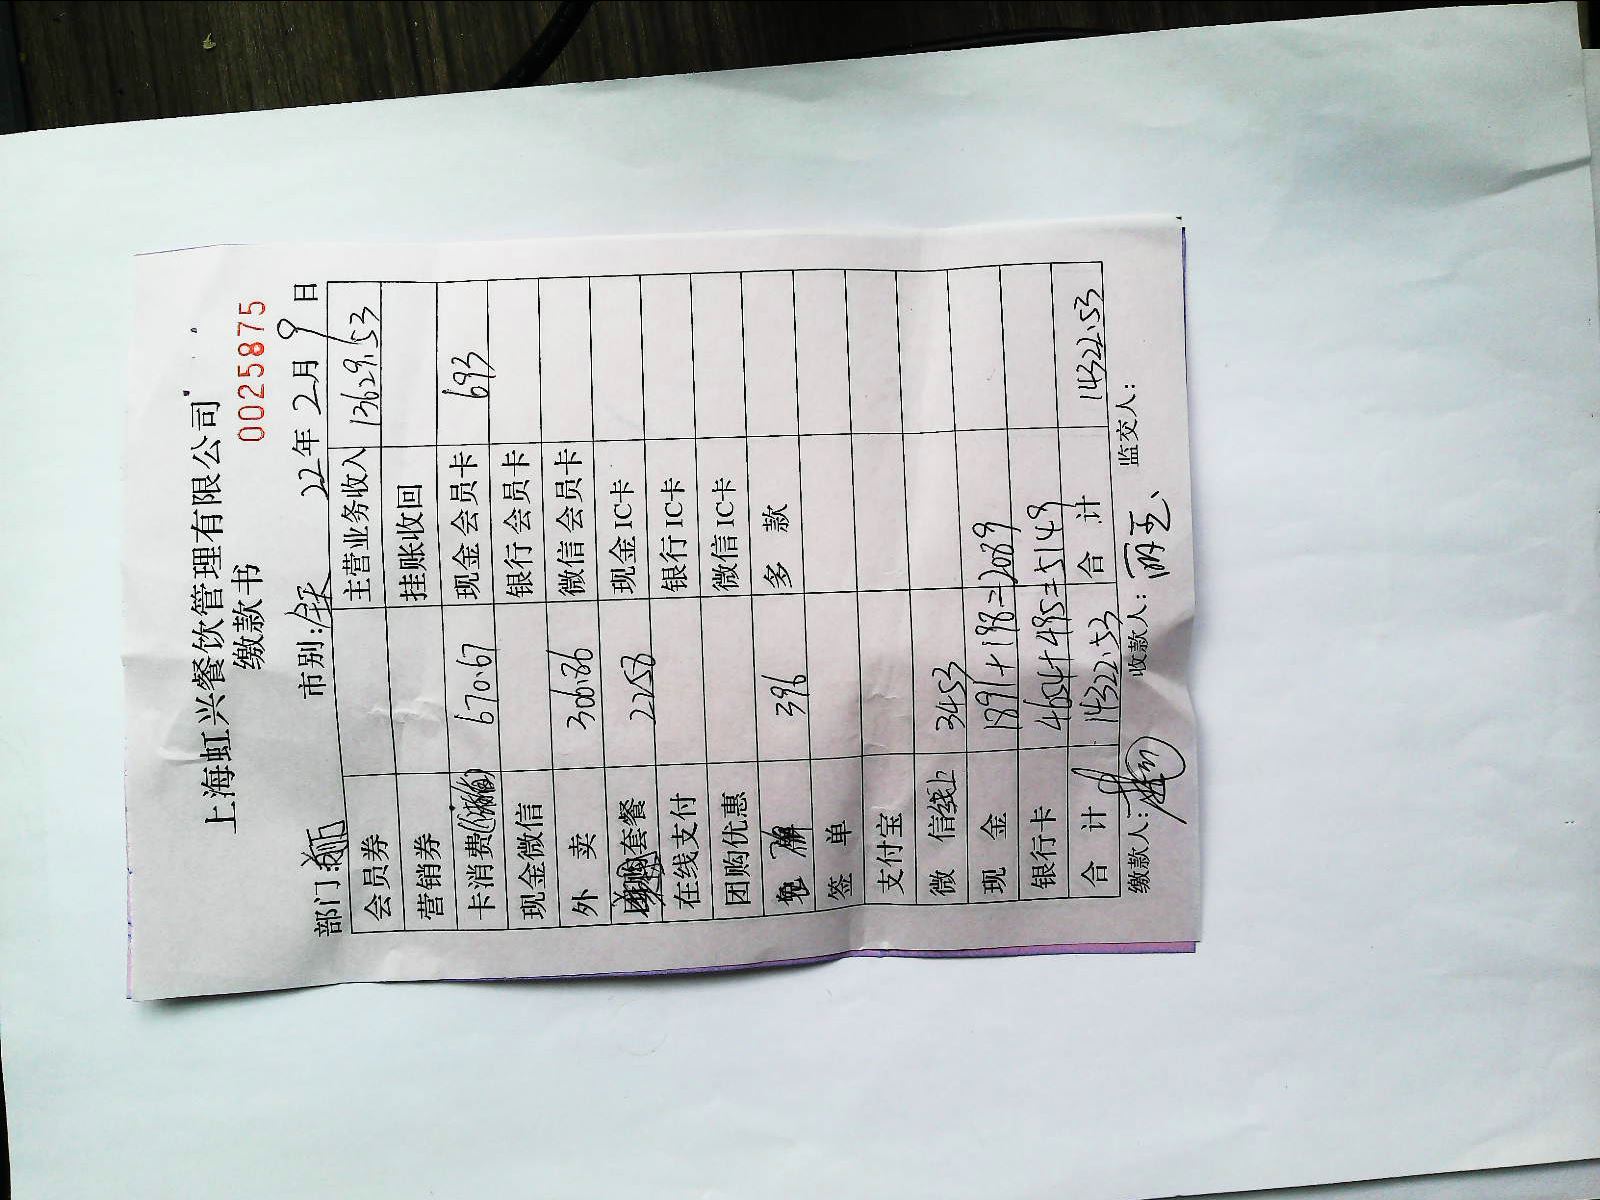 上海虹兴餐饮管理有限公司
缴款书 0025875
部门: 市别:全天 22年2月9日
会员券 主营业务收入 13629.53
营销券 挂账收回
卡消费 670.67 现金会员卡 693
现金微信 银行会员卡
外卖 306.86 微信会员卡
套餐 2758 现金IC卡
在线支付 银行IC卡
团购优惠 微信IC卡
396 多款
签单
支付宝
微信线上 3453
现金 1891+198=2089
银行卡 4654+495=5149
合计 14322.53 合计 14322.53
缴款人: 收款人: 监交人: